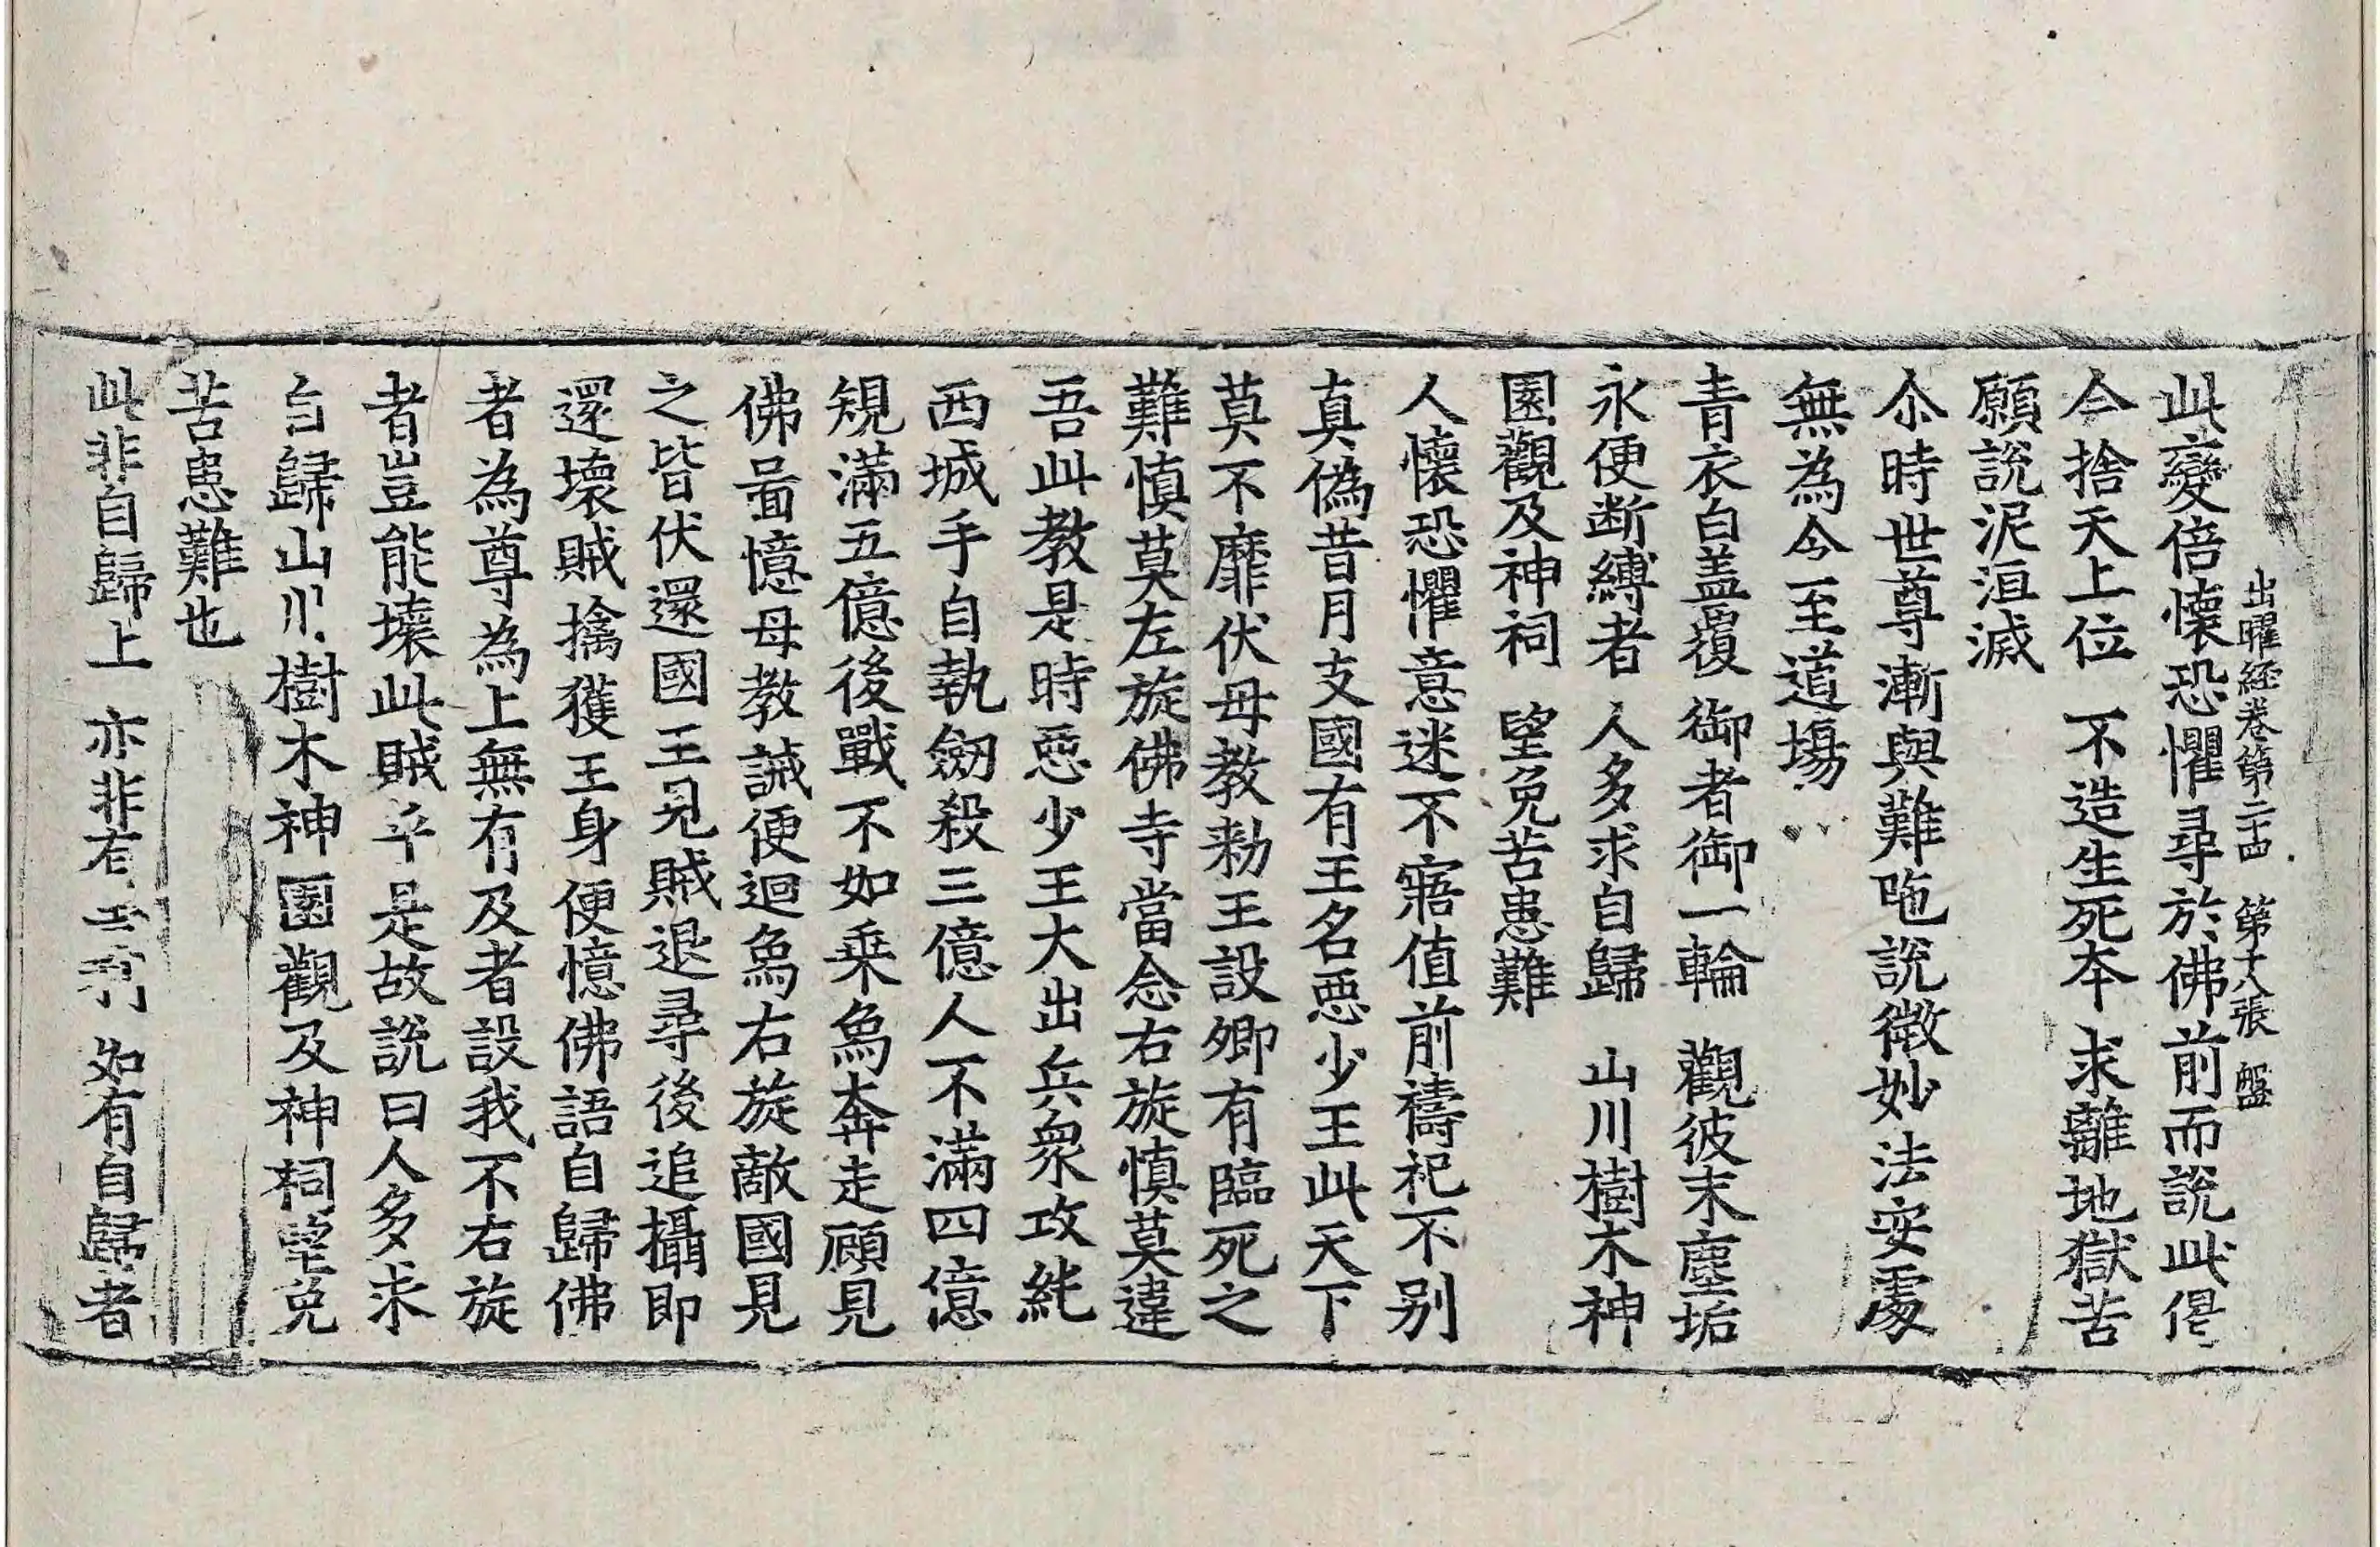 出曜経卷第二十四 第十八張 盤
此變倍懷恐懼尋於佛前而說此偈
今捨天上位 不造生死本 求離地獄苦
願說泥洹滅
尒時世尊漸與難陁說微妙法安處
無為今至道場
青衣白盖覆 御者御一輪 觀彼末塵垢
永便断縛者 人多求自歸 山川樹木神
園觀及神祠 望免苦患難
人懷恐懼意迷不寤值前禱祀不别
真偽昔月支國有王名惡少王此天下
莫不靡伏母教勑王設卿有臨死之
難慎莫左旋佛寺當念右旋慎莫違
吾此教是時惡少王大出兵衆攻純
西城手自執劒殺三億人不滿四億
規滿五億後戰不如乗烏奔走顧見
佛啚憶母教誡便迴烏右旋敵國見
之皆伏還國王見賊退尋後追攝即
還壞賊擒獲王身便憶佛語自歸佛
者為尊為上無有及者設我不右旋
者豈能壞此賊乎是故說曰人多求
自歸山川樹木神園觀及神祠望免
苦患難也
此非自歸上 亦非有 如有自歸者